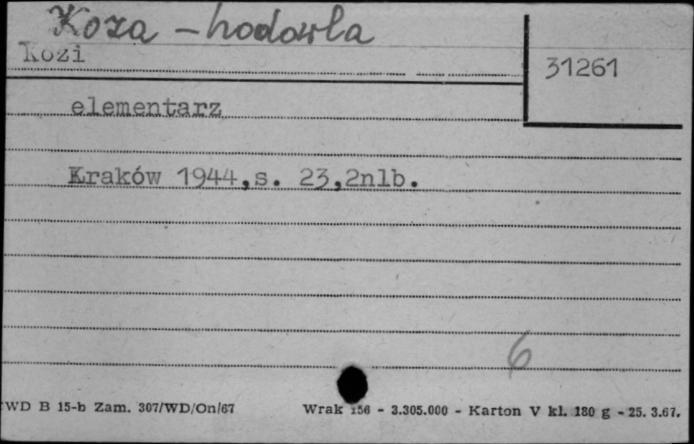 Koza - hodowla
Kozi
31261
elementarz
Kraków 1944,s. 23,2nlb.
6
WD B 15-b Zam. 307/WD/On/67 Wrak 156 - 3.305.000 - Karton V kl. 180 g - 25. 3.67.